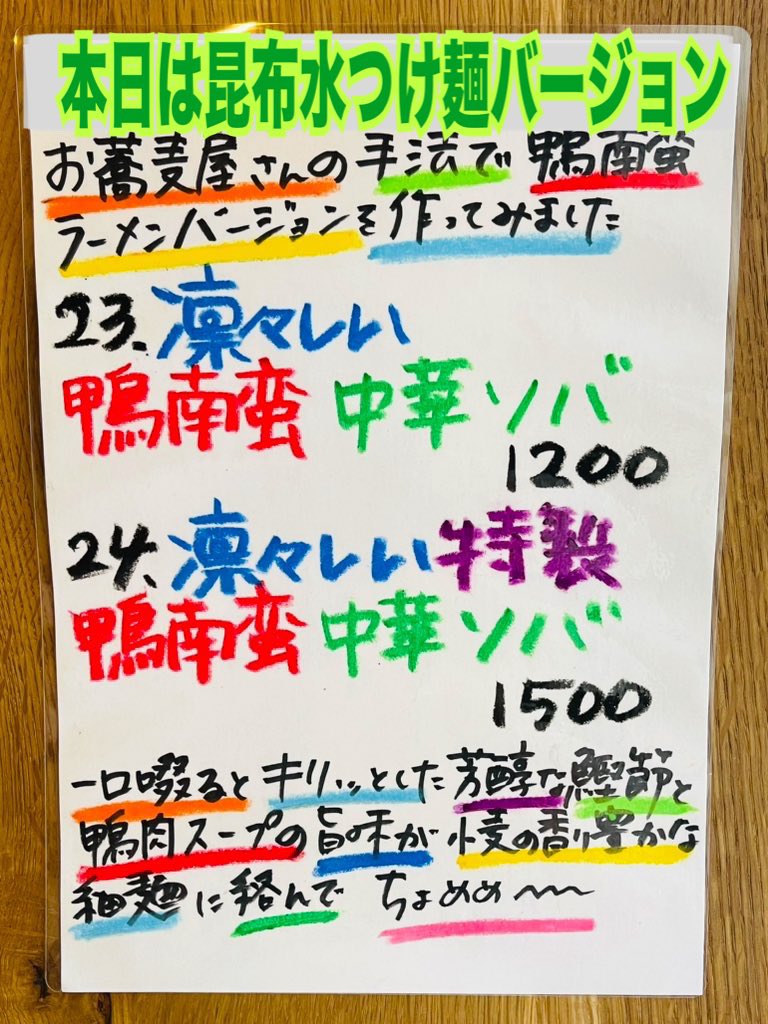 本日は昆布水つけ麺バージョン
お蕎麦屋さんの手法で鴨南蛮
ラーメンバージョンを作ってみました
23.凛々しい
鴨南蛮中華ソバ
1200
24.凛々しい特製
鴨南蛮中華ソバ
1500
一口啜るとキリッとした芳醇な鰹節と
鴨肉スープの旨味が小麦の香り豊かな
細麺に絡んでちょめめ〜〜